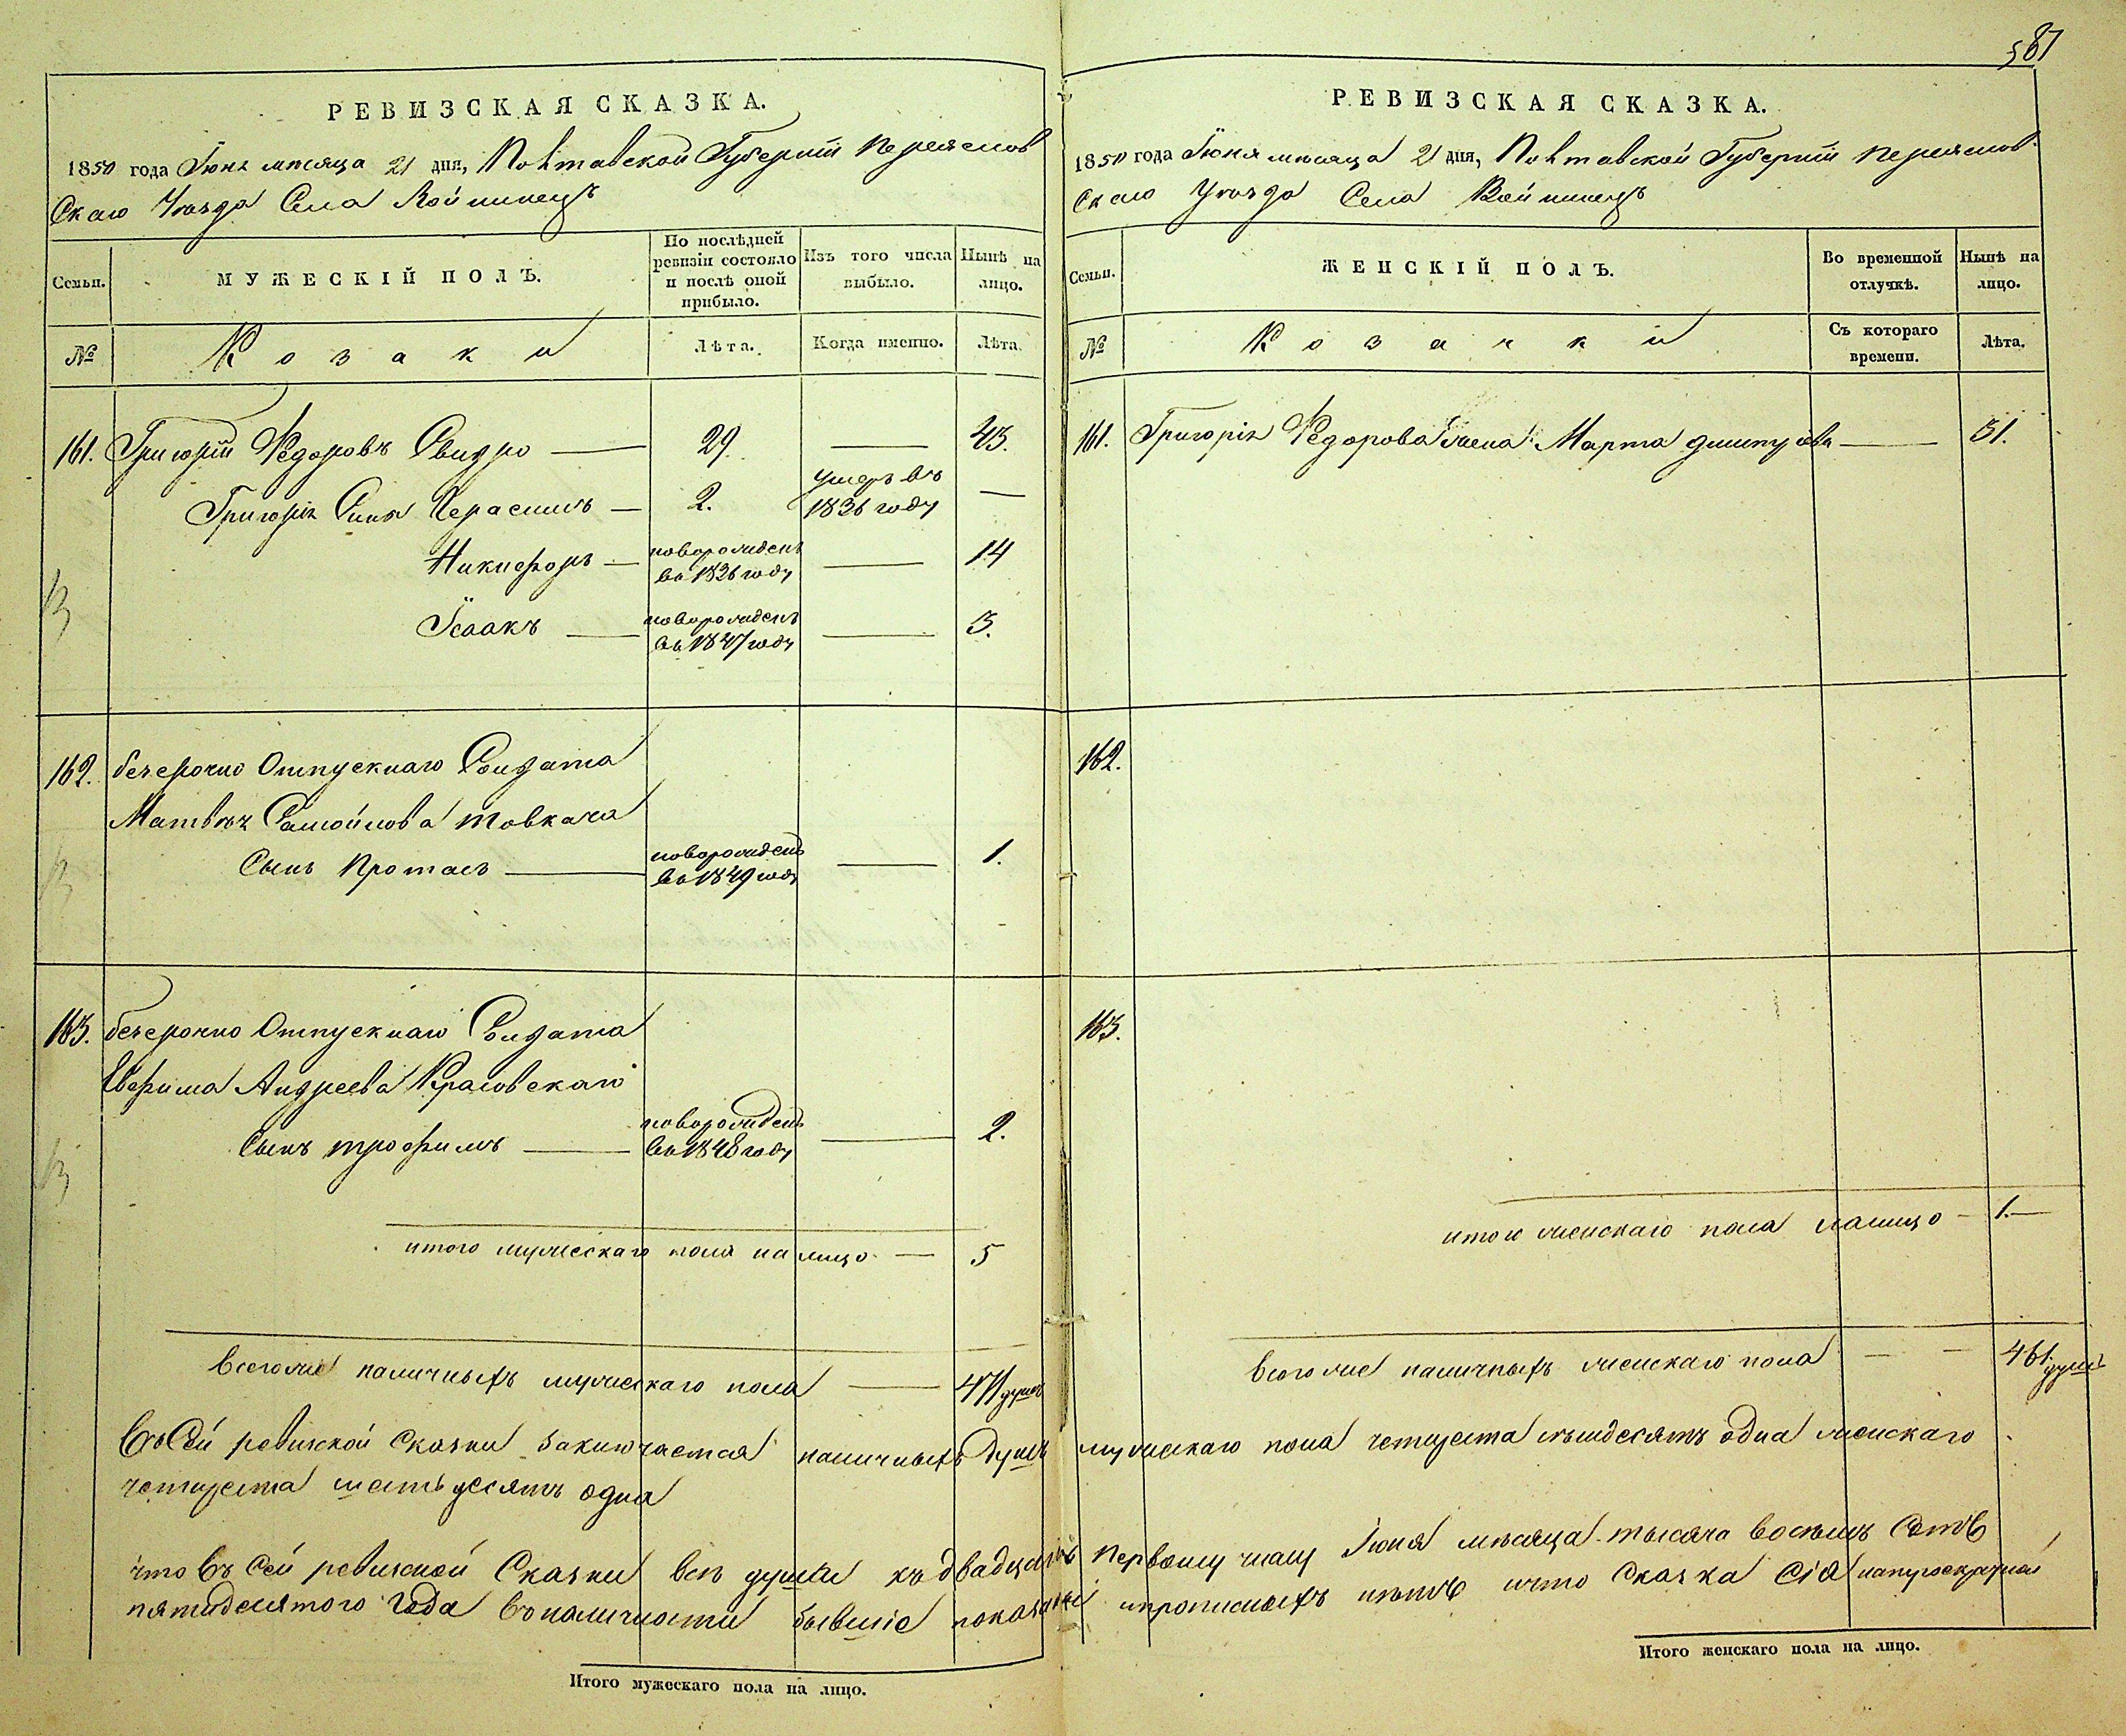 587
РЕВИЗСКАЯ СКАЗКА.
1850 года Іюня мѣсяца 21 дня, Полтавской Губерніи Переяслов
скаго Уѣзда Села Войтинецъ
Семьи.
МУЖЕСКІЙ ПОЛЪ.
По послѣдней ревизіи состояло и послѣ оной прибыло.
Изъ того числа выбыло.
Нынѣ на лицо.
№
Козаки
Лѣта.
Когда именно.
Лѣта.
161. Григорій Федоровъ Свидро — 29. — 43.
Григорія Сынъ Герасимъ — 2. умеръ въ 1836 году —
Никифоръ — новорожденъ въ 1836 году — 14
Ісаакъ — новорожденъ въ 1847 году — 3.
162. безсрочно Отпускнаго Солдата
Матвѣя Самойлова Товкача
Сынъ Протасъ — новорожденъ въ 1849 году — 1.
163. безсрочно Отпускнаго Солдата
Евфима Андреева Красовскаго
Сынъ трофимъ — новорожденъ въ 1848 году — 2.
итого мужескаго пола на лицо — 5
Всего же наличныхъ мужескаго пола — 471 душъ
РЕВИЗСКАЯ СКАЗКА.
1850 года Іюня мѣсяца 21 дня, Полтавской Губерніи Переяслов
скаго Уѣзда Села Войтинецъ
Семьи.
ЖЕНСКІЙ ПОЛЪ.
Во временной отлучкѣ.
Нынѣ на лицо.
№
Козачки
Съ котораго времени.
Лѣта.
161. Григорія Федорова жена Марта — 31.
162.
163.
итого женскаго пола налицо — 1. —
Всего же наличныхъ женскаго пола — — 461 душъ
Въ Сей ревизской Сказки заключается наличныхъ Душъ мужескаго пола четыреста семдесятъ одна женскаго
четыреста шестьдесятъ одна
что въ Сей ревизской Сказки всѣ души къ двадцать Первому числу Іюня мѣсяца тысяча восемь сотъ
пятидесятого Года въ наличности бывшіе показаны и прописныхъ нѣтъ и что Сказка Сія
Итого мужескаго пола на лицо.
Итого женскаго пола на лицо.